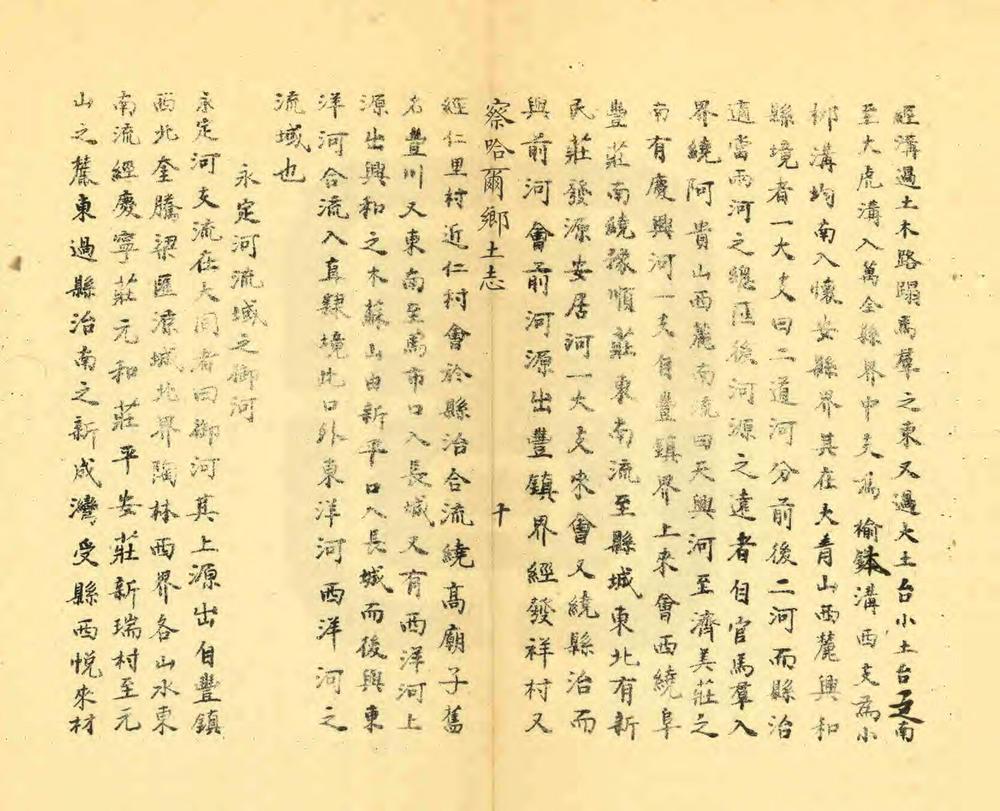 經溝過土木路蹋馬羣之東又過大土台小土台正南
至大虎溝入萬全縣界中支爲榆鉢溝西支爲小
柳溝均南入懷安縣界其在大青山西麓興和
縣境者一大支曰二道河分前後二河而縣治
適當兩河之總匯後河源之遠者自官馬羣入
界繞阿貴山西麓南流曰天興河至濟美莊之
南有慶興河一支自豐鎮界上來會西繞阜
豐莊南繞豫順莊東南流至縣城東北有新
民莊發源安居河一大支來會又繞縣治而
與前河會前河源出豐鎮界經發祥村又
察哈爾鄉土志
十
經仁里村近仁村會於縣治合流繞高廟子舊
名豐川又東南至馬市口入長城又有西洋河上
源出興和之木蘇山由新平口入長城而後與東
洋河合流入直隸境此口外東洋河西洋河之
流域也
永定河流域之御河
永定河支流在大同者曰御河其上源出自豐鎮
西北奎騰梁匯涼城北界陶林西界各山水東
南流經慶寧莊元和莊平安莊新瑞村至元
山之麓東過縣治南之新成灣受縣西悅來村